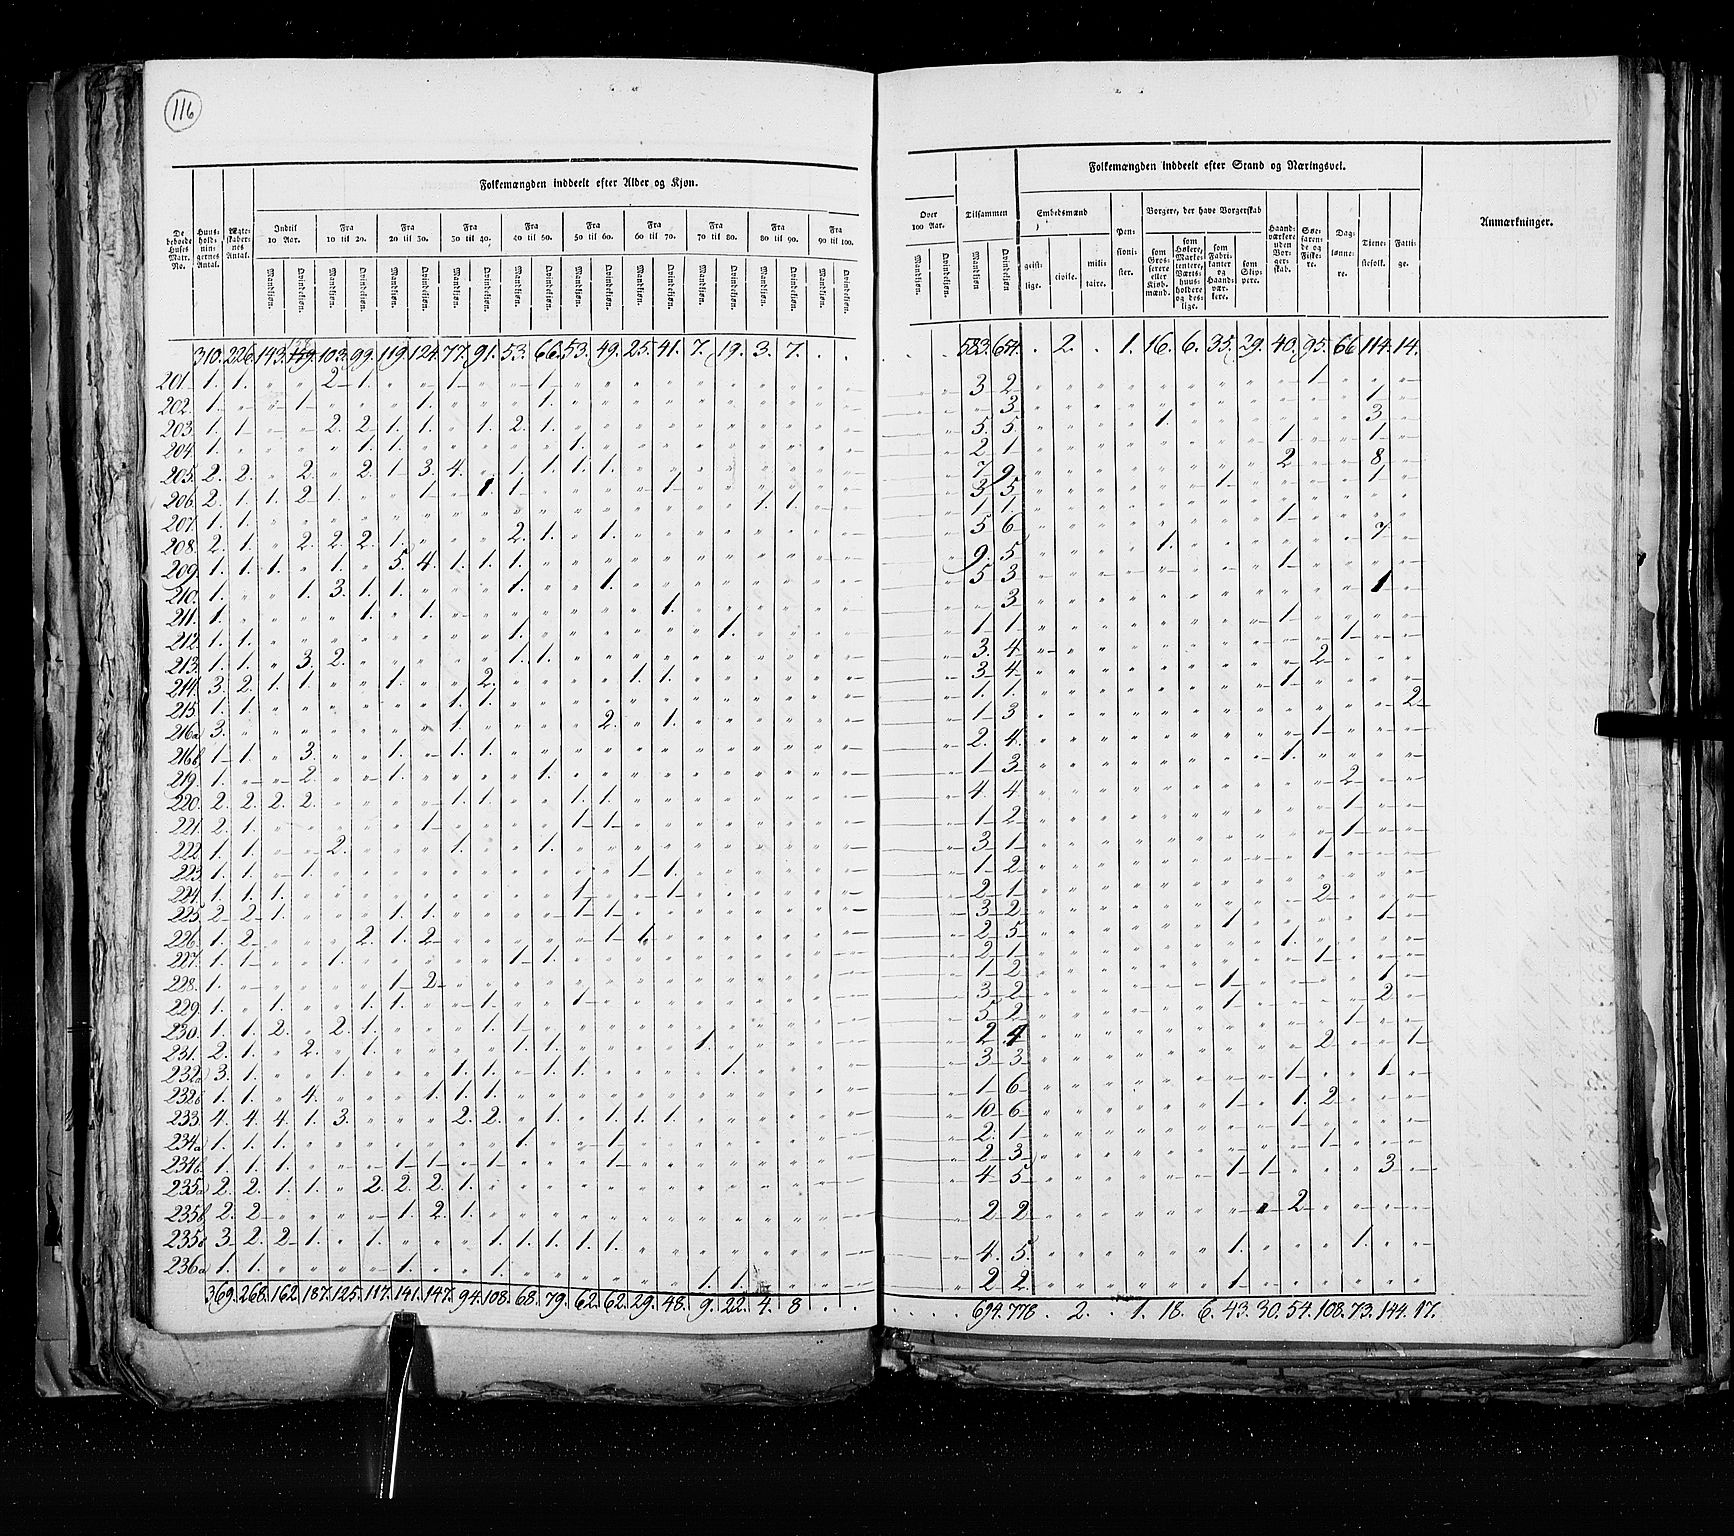 116
Folkemængden inddeelt efter Alder og Kjøn.
De beboede Huses Matr. No.
Huusholdningernes Antal.
Ægteskabernes Antal.
Indtil 10 Aar.
Fra 10 til 20.
Fra 20 til 30.
Fra 30 til 40.
Fra 40 til 50.
Fra 50 til 60.
Fra 60 til 70.
Fra 70 til 80.
Fra 80 til 90.
Fra 90 til 100.
Mandkjøn. Qvindekjøn. Mandkjøn. Qvindekjøn. Mandkjøn. Qvindekjøn. Mandkjøn. Qvindekjøn. Mandkjøn. Qvindekjøn. Mandkjøn. Qvindekjøn. Mandkjøn. Qvindekjøn. Mandkjøn. Qvindekjøn. Mandkjøn. Qvindekjøn. Mandkjøn. Qvindekjøn.
310. 226. 143. 103. 99. 119. 124. 77. 91. 53. 66. 53. 49. 25. 41. 7. 19. 3. 7.
201. 1. 1. 2 1. 1 1
202. 1. 1 1. 1.
203. 1. 1 2. 2 1. 1. 1. 2. 1.
204. 1. 1. 1. 1.
205. 2. 2. 2. 2. 1 3. 4. 1. 1. 1. 1.
206. 2. 1 1. 2 1. 1 1. 1. 1 1. 1.
207. 1. 1.
208. 2. 1. 2. 2. 2. 1. 2. 1. 1.
209. 1. 1. 1. 1. 5. 4. 1. 1. 1.
210. 1. 1. 3. 1. 1. 1. 1.
211. 1. 1. 1. 1.
212. 1. 1. 1. 1.
213. 1. 1. 3. 2. 1. 1.
214. 3. 2. 1. 1. 1. 2. 1. 1.
215. 1. 1. 1. 1.
216a) 3. 1. 2. 1.
216b. 1 1. 3. 1. 1. 1.
219. 1. 2. 1. 1.
220. 2. 2. 2. 2. 1. 1. 1. 1.
221. 2. 1. 1 1 1
222. 1. 1. 2. 1. 1.
223. 1. 1. 1. 1 1.
224. 1. 1. 1. 1. 1
225. 2 2 1. 1. 1. 1 1
226. 1. 2 2. 1. 2 1
227. 1. 1 1. 1. 1.
228. 1. 1 2
229. 1. 1. 1. 1. 1. 1
230. 1. 1. 2. 2. 1. 1. 1
231. 2. 1. 2. 1. 1. 1. 1.
232a) 3. 1. 1. 1. 1. 1. 1. 1.
232b 1. 1. 4. 1. 1. 1.
233. 4. 4. 4. 1. 3. 2. 2. 1. 1. 1. 1.
234a) 1. 1. 1. 1. 1.
234b. 1. 1. 1. 1 1 1 1
235a) 2. 2. 1. 1. 2. 2. 2. 1.
235b 2. 2 1. 2. 1.
235 3 2. 2 1. 1. 1. 1. 1. 1. 1.
236a) 1. 1. 1. 1. 1. 1.
369. 268. 162. 187. 125. 117. 141. 147. 94. 108. 68. 79. 62. 62. 29. 48. 9. 22. 4. 8
Over 100 Aar.
Mandkjøn. Qvindekjøn.
Tilsammen
Mandkjøn Qvindekjøn
Folkemængden inddeelt efter Stand og Næringsvei.
Embedsmænd
geistlige. civile. militaire.
Pensionister.
Borgere, der have Borgerskab
som Grosserere eller Kjøbmænd.
som Høkere, Marketentere, Værtshuusholdere og deslige.
som Fabrikanter og Haandværkere.
som Skippere.
Haandværkere uden Borgerskab.
Søefarende og Fiskere.
Daglønnere.
Tjenestefolk.
Fattige.
Anmærkninger.
583. 654. 2. 1. 16. 6. 35. 29. 40. 95. 66 114. 14.
3 2 1
3 1
5. 5 1. 3
2 1 1 1
7 9. 2 8
3 5 1 1
1 1. 1
5 6 7
9. 5 1.
5 3 1 1
3
1 1 1 1
3. 4 2
3 4 1
1 1. 2
1 3
2. 4. 1
1 3 1.
4 4 2
1 2 1
3 1 1
1 2 1
2 1
3 2 2
2 5 1 1
2 1 1.
1 2 1
3 2 1 1
5 2 1 2
2 4 1
3 3 2 1
1 6 1 1
10 6 1 1. 2
2. 1 1
2 3 1
4 5 1 1 3
2 2 2
4. 5. 1. 1.
2 2. 1
694. 778. 2. 1. 18. 6. 43. 30. 54. 108. 73. 144. 17.